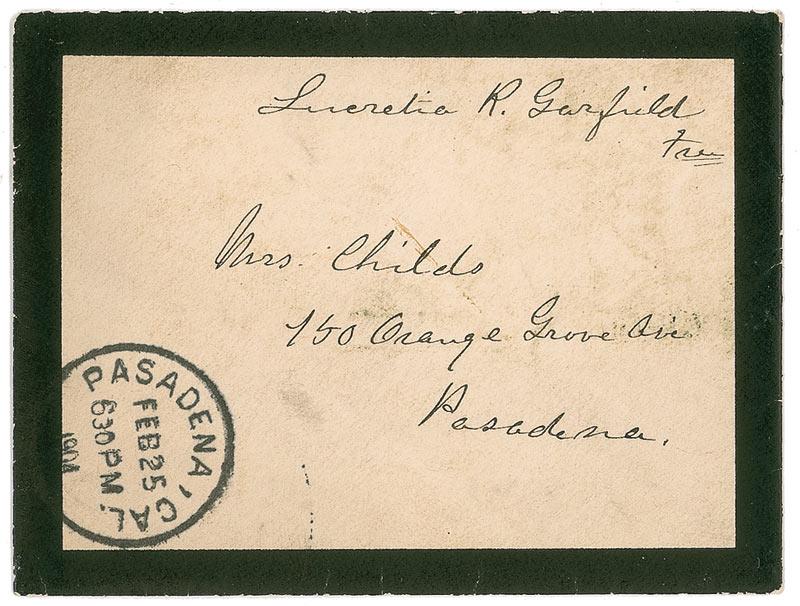 Lucretia R. Garfield
Free
Mrs. Childs
150 Orange Grove Ave
Pasadena.
PASADENA, CAL.
FEB 25
630 PM
1904